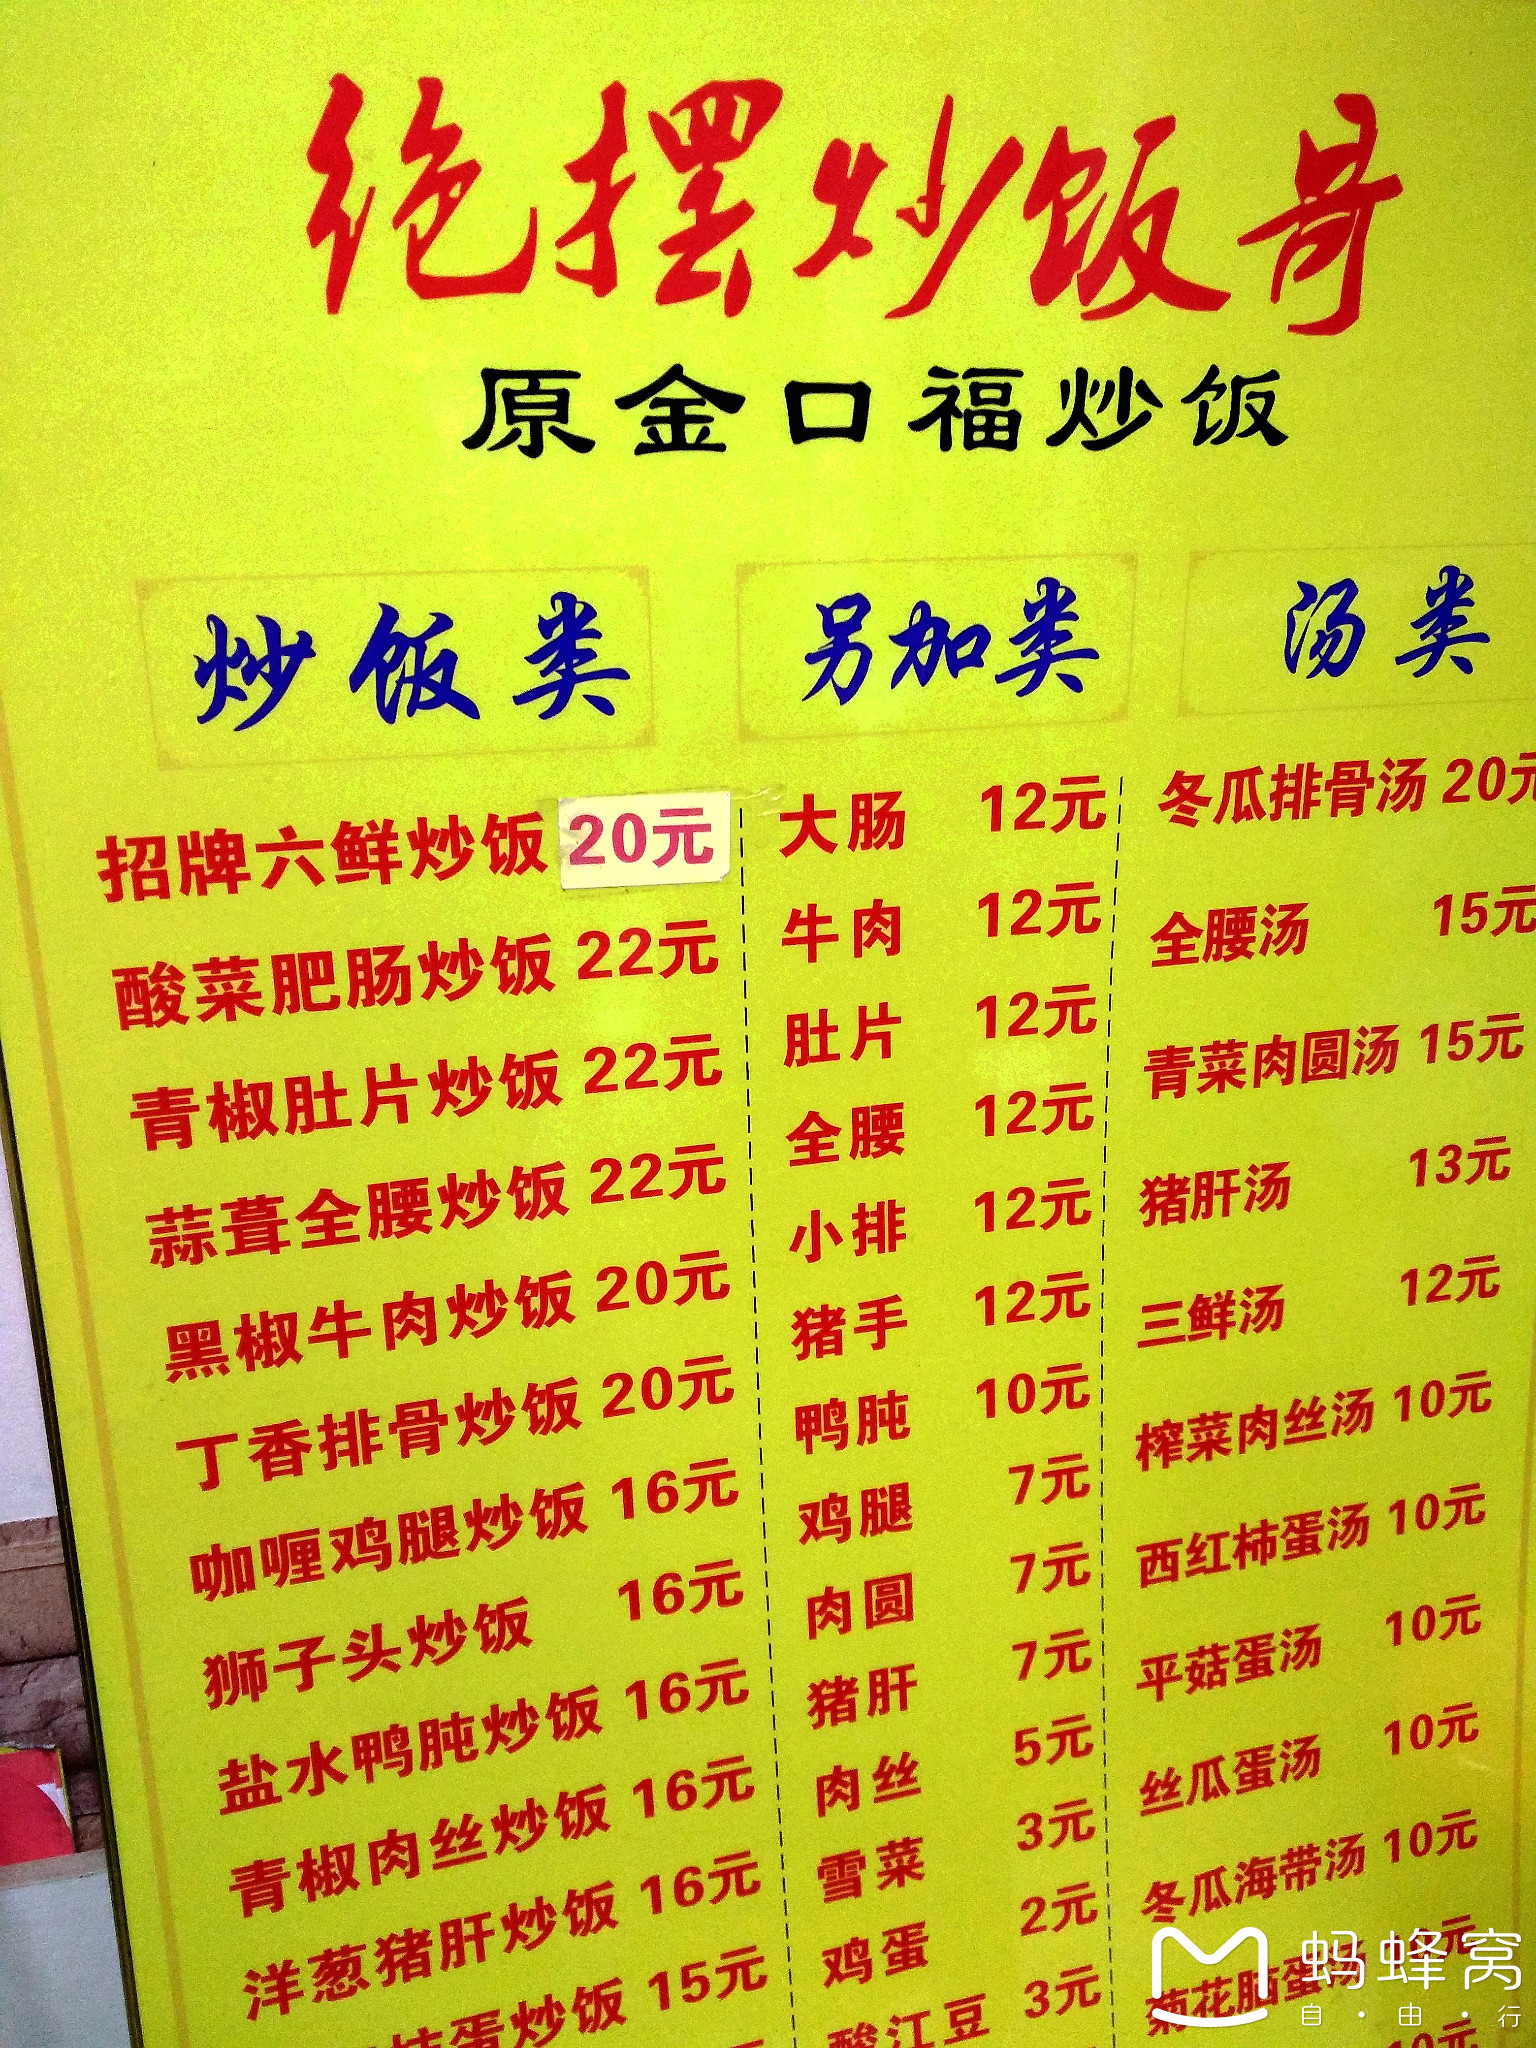 绝摆炒饭哥
原金口福炒饭
炒饭类
招牌六鲜炒饭 20元
酸菜肥肠炒饭 22元
青椒肚片炒饭 22元
蒜葺全腰炒饭 22元
黑椒牛肉炒饭 20元
丁香排骨炒饭 20元
咖喱鸡腿炒饭 16元
狮子头炒饭 16元
盐水鸭肫炒饭 16元
青椒肉丝炒饭 16元
洋葱猪肝炒饭 16元
蛋炒饭 15元
另加类
大肠 12元
牛肉 12元
肚片 12元
全腰 12元
小排 12元
猪手 12元
鸭肫 10元
鸡腿 7元
肉圆 7元
猪肝 7元
肉丝 5元
雪菜 3元
鸡蛋 2元
酸江豆 3元
汤类
冬瓜排骨汤 20元
全腰汤 15元
青菜肉圆汤 15元
猪肝汤 13元
三鲜汤 12元
榨菜肉丝汤 10元
西红柿蛋汤 10元
平菇蛋汤 10元
丝瓜蛋汤 10元
冬瓜海带汤 10元
菊花脑蛋汤
10元
蚂蜂窝
自·由·行